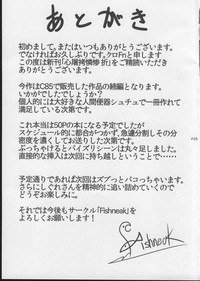 あとがき
初めまして。またはいつもありがとうございます。
でなければお久しぶりです、クロFnと申します
この度は新刊「心屠拷憐惨 折」をご精読いただき
ありがとうございます。
今作はC85で販売した作品の続編となります。
いかがでしたでしょうか？
個人的には大好きな人間便器シチュで一冊作れて
満足している次第です。
これ本当は50Pの本になる予定でしたが
スケジュール的に都合がつかず、急遽分割しその分
密度を濃くしてお送りした次第です。
ぶっちゃけるとパイズリシーンは丸々足しました。
直接的な挿入は次回に持ち越しということで……
予定通りであれば次回はズブっとパコっちゃいます。
さらにしぐれさんを精神的に追い詰めていくので
どうぞお楽しみに。
それでは今後もサークル「Fishneak」を
よろしくお願いします！
Fishneak